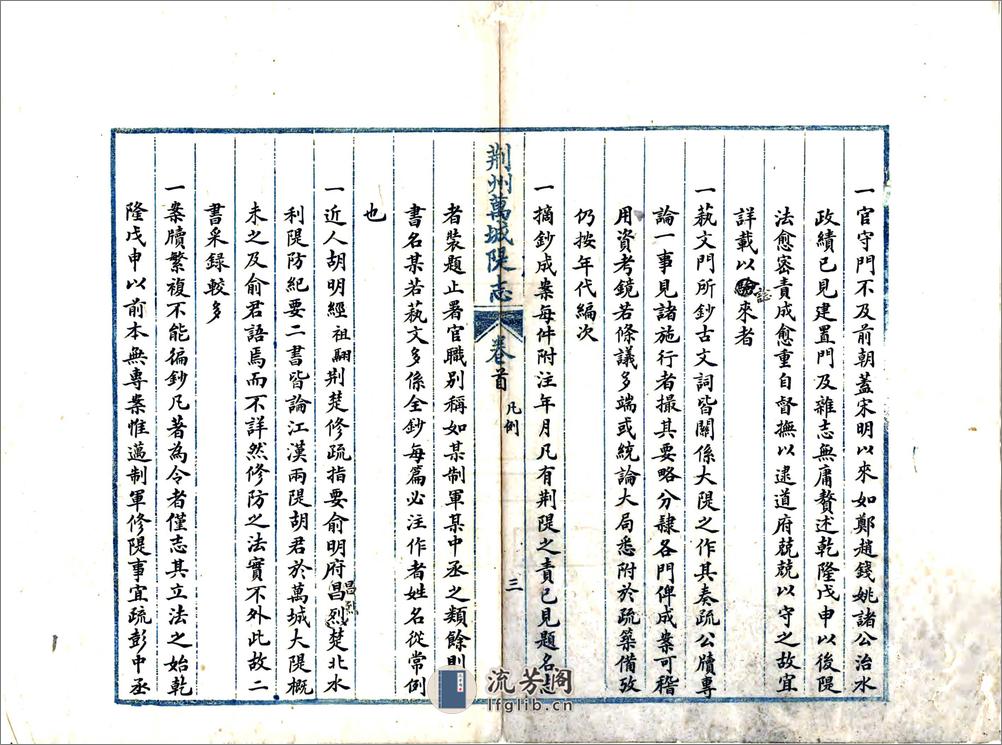 一官守門不及前朝蓋宋明以來如鄭趙錢姚諸公治水
政績已見建置門及雜志無庸贅述乾隆戊申以後隄
法愈審責成愈重自督撫以逮道府兢兢以守之故宜
詳載以驗來者
誌
一蓺文門所鈔古文詞皆關係大隄之作其奏疏公牘專
論一事見諸施行者撮其要略分隸各門俾成案可稽
用資考鏡若條議多端或統論大局悉附於疏築備攷
仍按年代編次
一摘鈔成案每件附注年月凡有荆隄之責已見題名
荆州萬城隄志 卷首 凡例 三
者裝題止署官職別稱如某制軍某中丞之類餘則
書名某若蓺文多係全鈔每篇必注作者姓名從常例
也
一近人胡明經祖翮荆楚修疏指要俞明府昌烈楚北水
昌烈
利隄防紀要二書皆論江漢兩隄胡君於萬城大隄概
未之及俞君語焉而不詳然修防之法實不外此故二
書采錄較多
一案牘繁複不能徧鈔凡著為令者僅志其立法之始乾
隆戊申以前本無專案惟邁制軍修隄事宜疏彭中丞
流芳閣
lfglib.cn